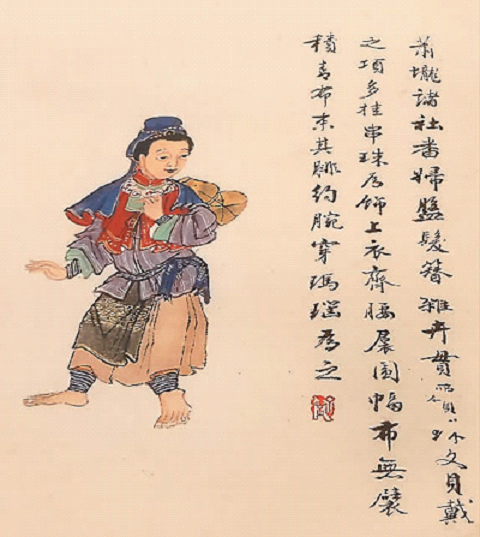 蕭壠諸社番婦盤髮簪雜卉貫文貝戴
之項多挂串珠為飾上衣齊腰圍幅布無襞
積青布束其腓約腕穿瑪瑙為之